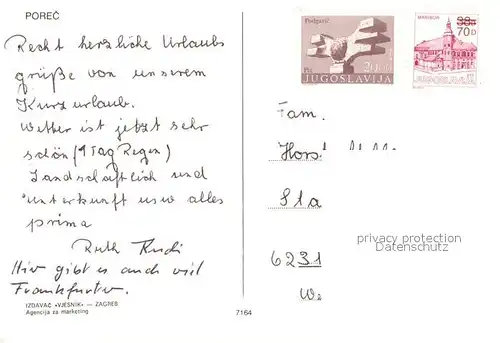 POREČ
Recht herzliche Urlaubs
grüße von unserem
Kurzurlaub.
Wetter ist jetzt sehr
schön (1 Tag Regen)
Landschaftlich und
Unterkunft usw alles
prima
Ruth Rudi
Hier gibt es auch viel
Frankfurter.
IZDAVAČ «VJESNIK» — ZAGREB
Agencija za marketing
7164
Podgarić
JUGOSLAVIJA
MARIBOR
70 D
JUGOSLAVIJA
Fam.
Horst
Sta
privacy protection
Datenschutz
6231